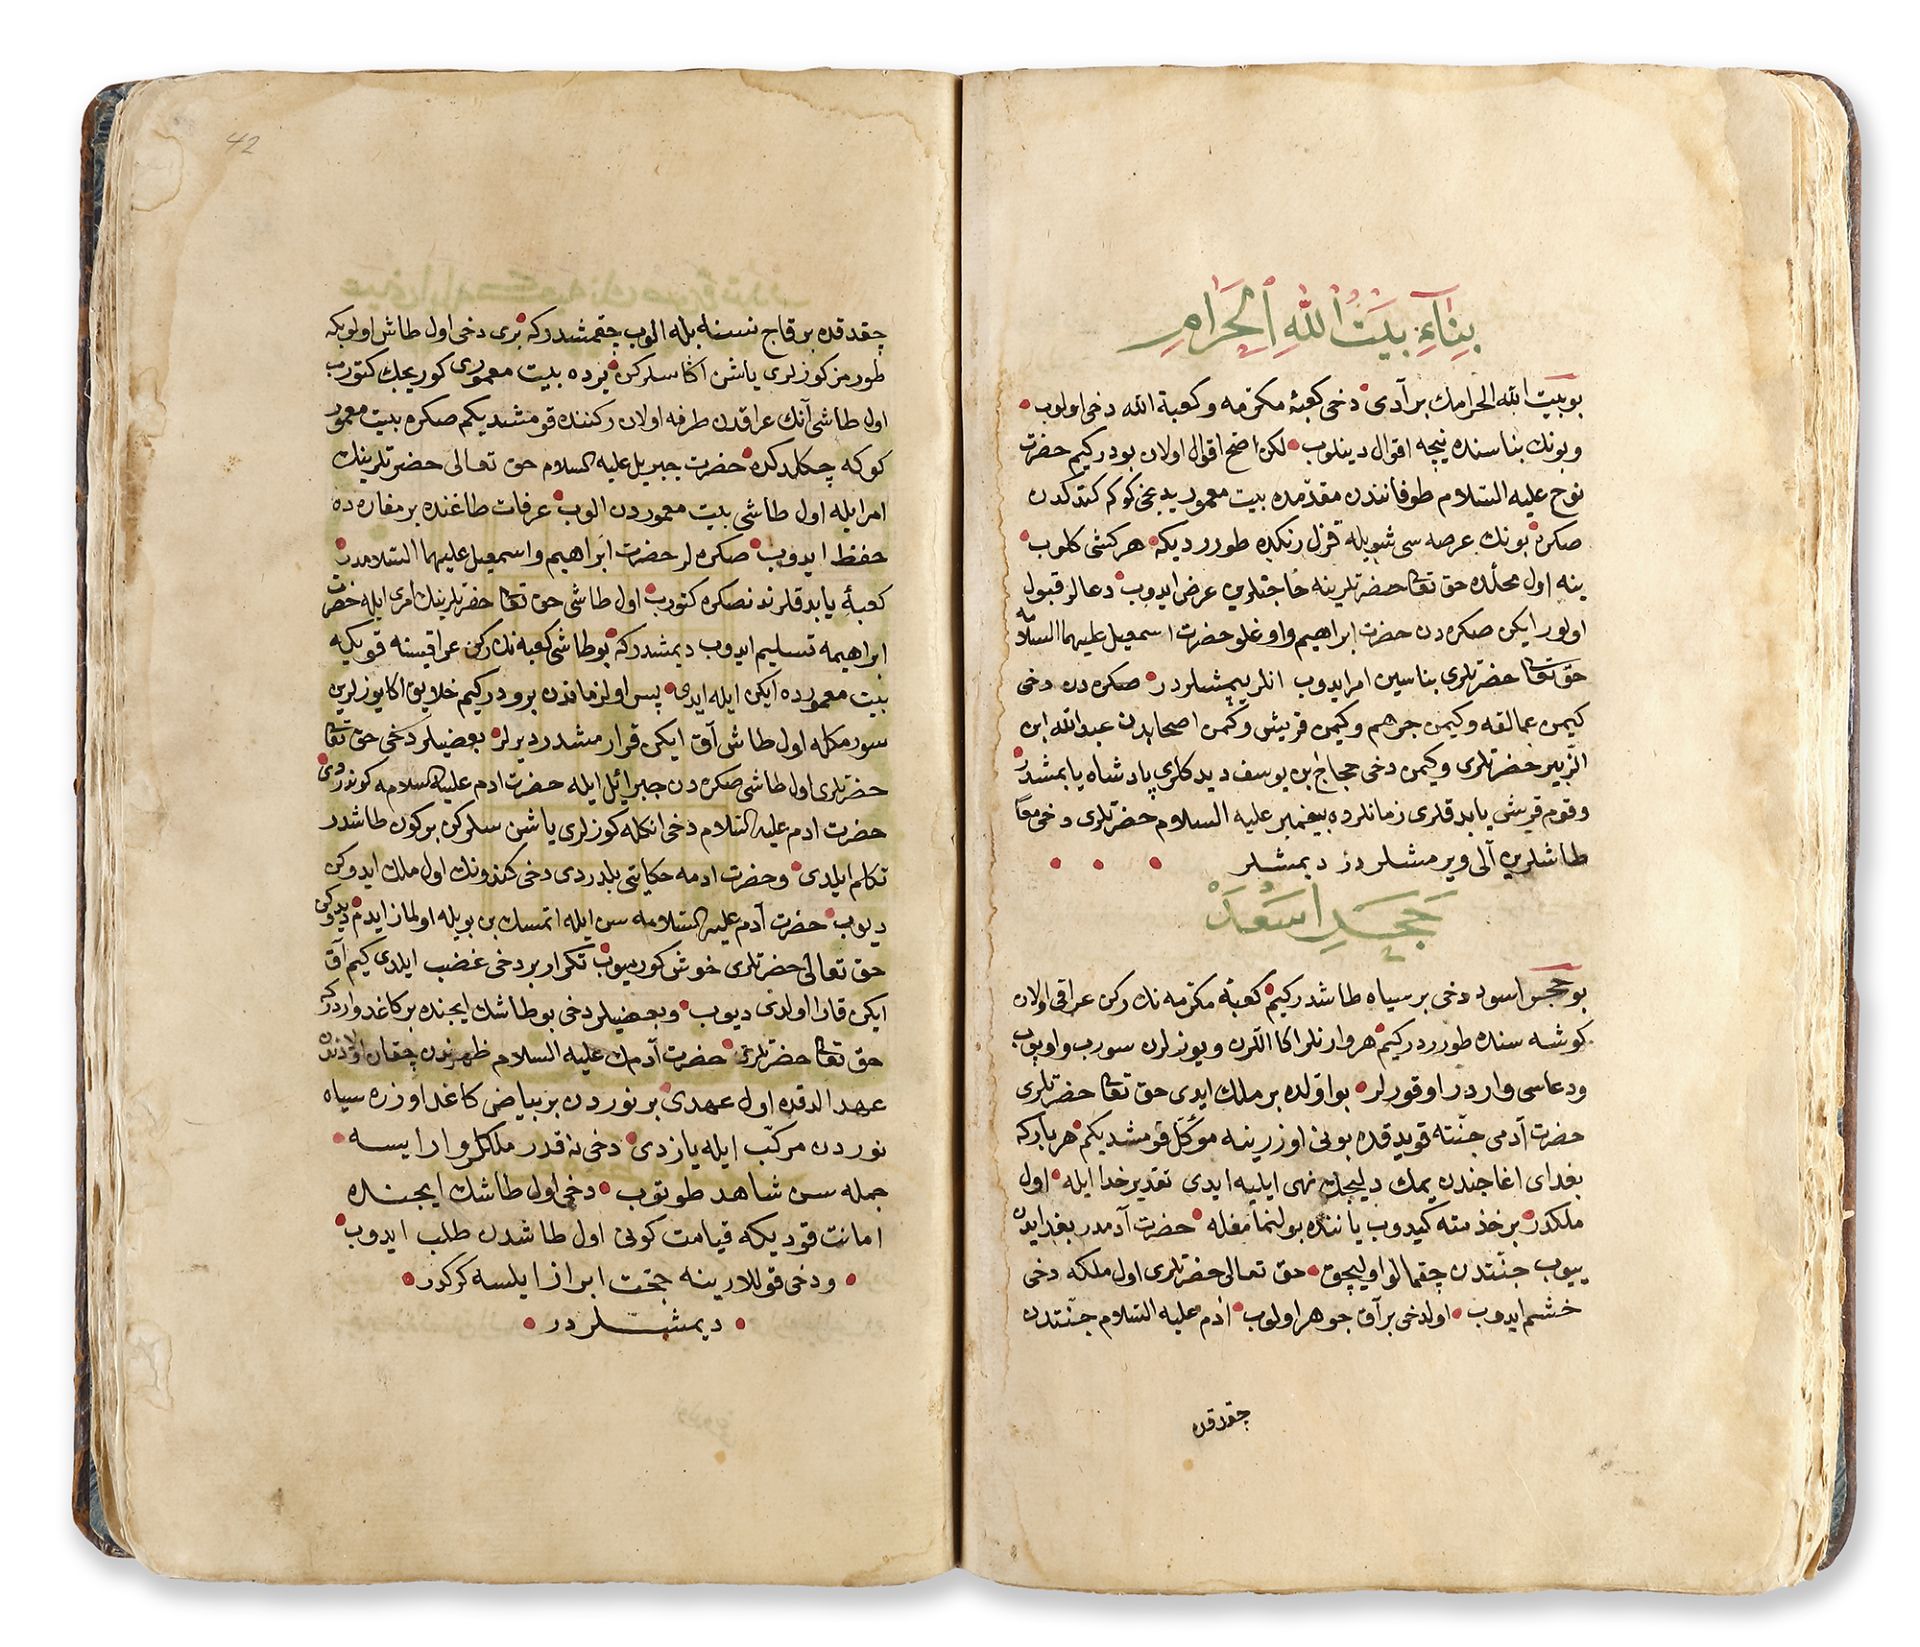 بِنَاءِ بَيْتُ اللهِ الْحَرَامِ
بو بيت الله الحرامك بر آدى دخى كعبۀ مكرّمه و كعبة الله دخى اولوب
و بونك بناسنده نيجه اقوال دينلوب لكن اصح اقوال اولان بودركيم حضرت
نوح عليه السلام طوفانندن مقدّمده بيت معمور يدعى كوكه كتدكدن
صكره بونك عرصه سى شويله قزل رنكده طورر ديكه هر كشى كلوب
ينه اول محلده حق تعا حضرتلرينه حاجتلرين عرض ايدوب دعالر قبول
اولور ايكن صكره دن حضرت ابراهيم و اوغلو حضرت اسمعيل عليهما السلامه
حق تعا حضرتلرى بناسين امر ايدوب انلر يپمشلردر صكره دن دخى
كيمن عمالقه و كيمن جرهم و كيمن قريش و كمن اصحابدن عبد الله ابن
الزّبير حضرتلرى و كيمن دخى حجاج بن يوسف ديدكلرى پادشاه يابمشدر
و قوم قريش يابدقلرى زمانلرده پيغمبر عليه السلام حضرتلرى دخى معًا
طاشلرين آلى ويرمشلردر ديمشلر
حجر اسعد
بو حجر اسود دخى بر سياه طاشدركيم كعبۀ مكرّمه نك ركن عراقى اولان
كوشه سنده طورر دركيم هر وارنلر اكا اللرن و يوزلرن سورب و اوپوب
و دعاسى واردر اوقورلر بو اوّلده بر ملك ايدى حق تعا حضرتلرى
حضرت آدمى جنّته قويدقده بونى اوزرينه موكّل قومشديكم هر باركه
بغداى اغاجندن يمك ديليجك نهى ايليه ايدى تقدير خدا ايله اول
ملكدر بر خدمته كيدوب ياننده بولنمامغله حضرت آدمدر بغدايدن
ييوب جنّتدن چقمالو اوليجق حق تعالى حضرتلرى اول ملكه دخى
خشم ايدوب اولدخى بر آق جوهر اولوب آدم عليه السلام جنّتدن
چقدقده
42
چقدقده بر قاج نسنه بله الوب چقمشدركه برى دخى اول طاش اولوبكه
طورمز كوزلرى ياشن اكا سلركن يرده بيت معمورى كوريجك كتورب
اول طاشى آنك عراقدن طرفه اولان ركننده قومشديكم صكره بيت معمور
كوكه چكلدكده حضرت جبريل عليه السلام حق تعالى حضرتلرينك
امرايله اول طاشى بيت معموردن الوب عرفات طاغنده بر مغاره ده
حفظ ايدوب صكره لر حضرت ابراهيم و اسمعيل عليهما السلامدر
كعبۀ يابدقلرندنصكره كتورب اول طاشى حق تعا حضرتلرينك امرى ايله حضرت
ابراهيمه تسليم ايدوب ديمشدركه بو طاشى كعبه نك ركن عراقيسنه قويكه
بيت معمورده ايكن ايله ايدى پس اول زماندن برو دركيم خلايق اكا يوزلرين
سورمكله اول طاش آق ايكن قرارمشدر ديرلر بعضيلر دخى حق تعا
حضرتلرى اول طاشى صكره دن جبرائل ايله حضرت ادم عليه السلامه كوندردى
حضرت ادم عليه السلام دخى انكله كوزلرى ياشن سلركن بر كون طاشدر
تكلم ايلدى و حضرت ادمه حكايتى بلدردى دخى كندونك اول ملك ايدوكن
ديوب حضرت آدم عليه السلامه سن ايله اتمسك بن بويله اولماز ايدم ديدوكن
حق تعالى حضرتلرى خوش كورميوب تكرار بر دخى غضب ايلدى كيم آق
ايكن قارا اولدى ديوب و بعضيلر دخى بو طاشك ايجنده بر كاغد واردركه
حق تعا حضرتلرى حضرت آدمك عليه السلام ظهرندن چقان اولادندن
عهد الدقده اول عهدى بر نوردن بر بياض كاغد اوزره سياه
نوردن مركّب ايله يازدى دخى نه قدر ملكلر وار ايسه
جمله سن شاهد طوتوب دخى اول طاشك ايجنده
امانت قوديكه قيامت كونى اول طاشدن طلب ايدوب
و دخى قوللارينه حجّت ابراز ايلسه كركدر
ديمشلردر